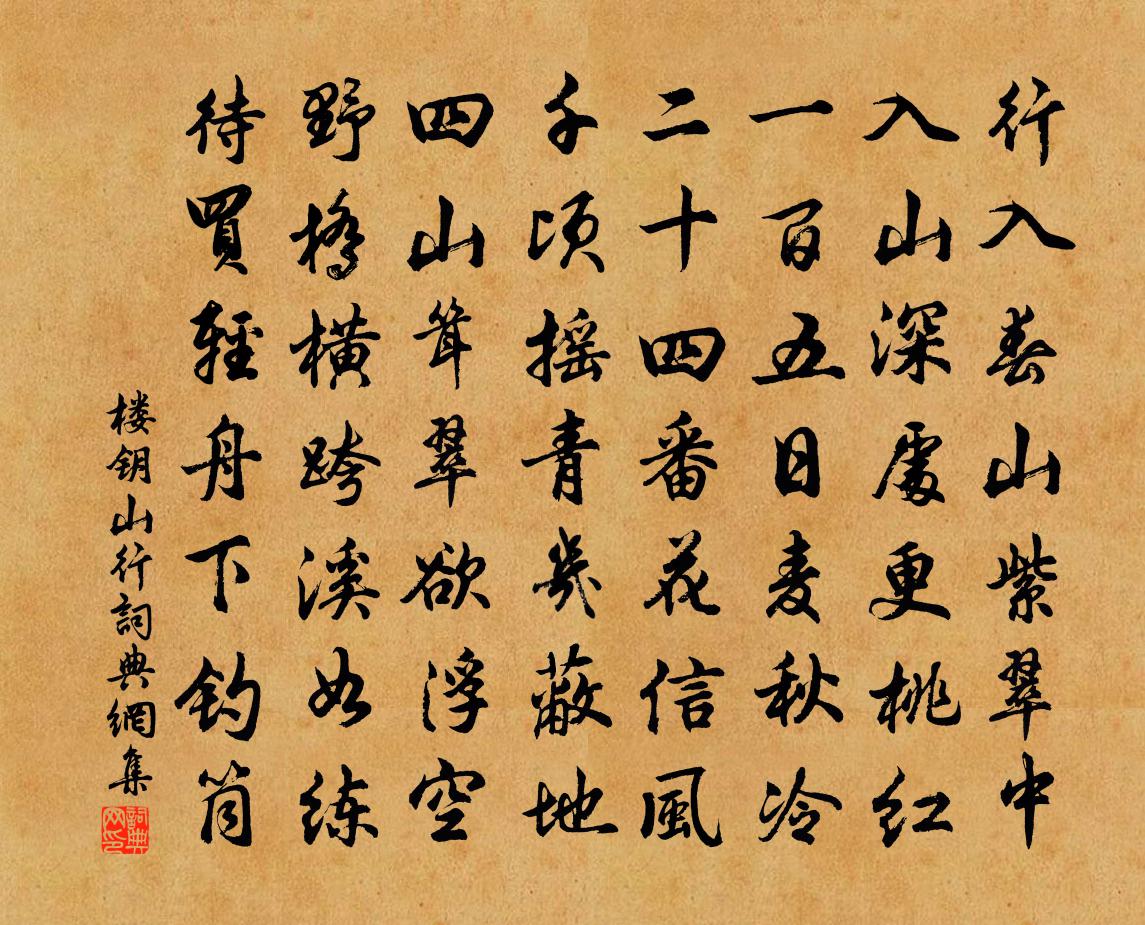 行入春山紫翠中
入山深處更桃红
一百五日麦秋冷
二十四番花信風
千顷摇青幾蔽地
四山耸翠欲浮空
野橋横跨溪如练
待買輕舟下钓筒
楼钥山行詞典網集
詞典网印